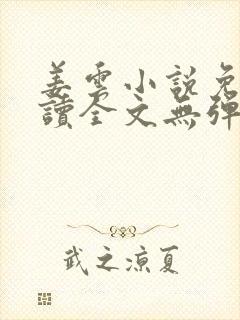 姜雲小說免
讀全文無彈
武之涼夏